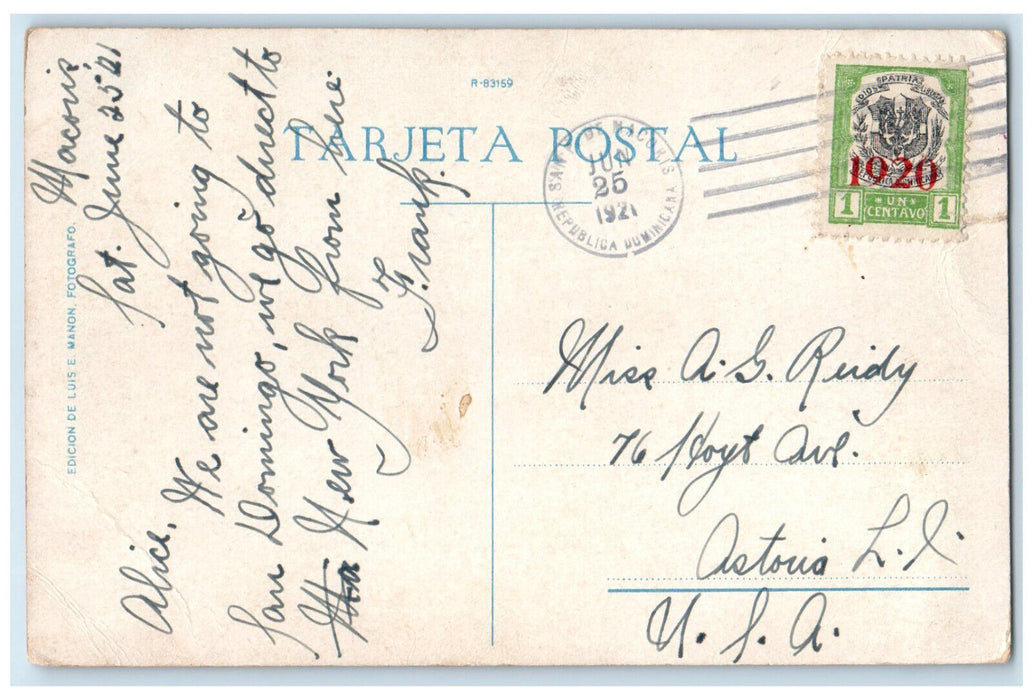 R-83159
TARJETA POSTAL
EDICION DE LUIS E. MAÑON, FOTOGRAFO.
Macoris
Sat. June 25 '21
Alice. We are not going to
San Domingo, we go direct to
New York from here
Frank.
JUN
25
1921
REPUBLICA DOMINICANA
DIOS PATRIA
1920
REPUBLICA DOMINICANA
UN
1 CENTAVO 1
Miss A. G. Reidy
76 Hoyt Ave.
Astoria L. I.
U. S. A.